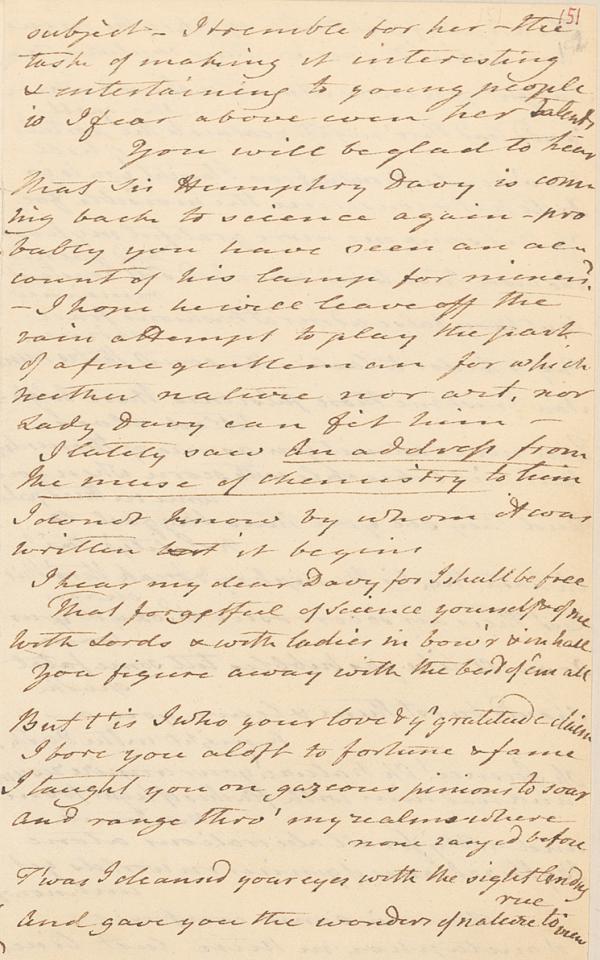 151
subject - I tremble for her - the
task of making it interesting
& entertaining to young people
is I fear above even her talents
You will be glad to hear
that Sir Humphry Davy is com
ing back to science again - pro
bably you have seen an ac
count of his lamp for miners.
- I hope he will leave off the
vain attempt to play the part
of a fine gentleman for which
neither nature nor art, nor
Lady Davy can fit him -
I lately saw An address from
the muse of chemistry to him
I do not know by whom it was
written but it begins
I hear my dear Davy for I shall be free
That forgetful of science yourself & of me
With Lords & with ladies in bow'r & in hall
You figure away with the best of 'em all
But t'is I who your love & yr gratitude claim
I bore you aloft to fortune & fame
I taught you on gazeous pinions to soar
And range thro' my realms where
none ranged before
T'was I cleansd your eyes with the sight lending
rue
And gave you the wonders of nature to view